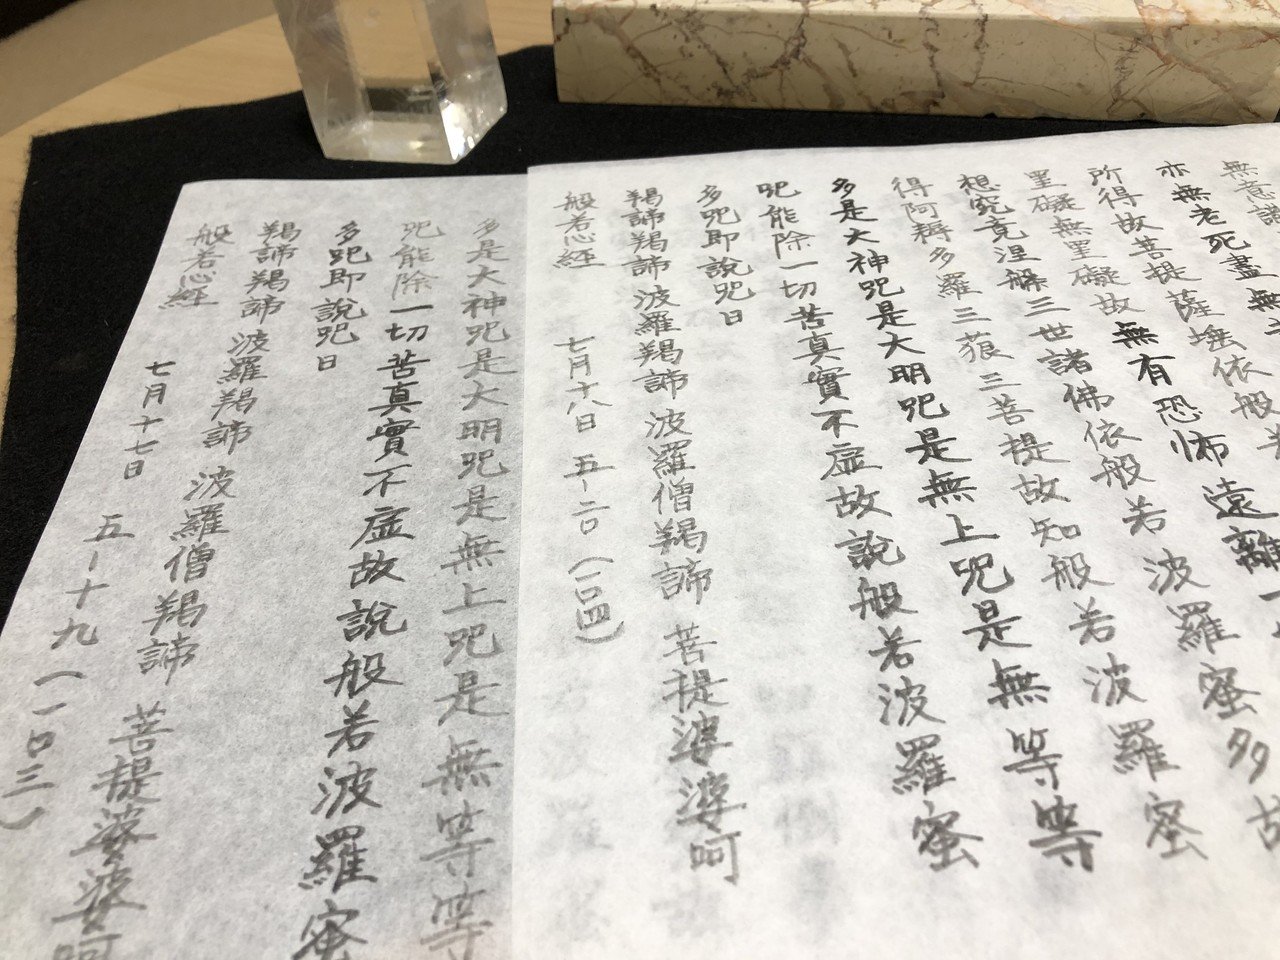 無意識
亦無老死盡無
所得故菩提薩埵依般若
罣礙無罣礙故無有恐怖遠離一
想究竟涅槃三世諸佛依般若波羅蜜多故
得阿耨多羅三藐三菩提故知般若波羅蜜
多是大神咒是大明咒是無上咒是無等等
咒能除一切苦真實不虛故說般若波羅蜜
多咒即說咒曰
羯諦羯諦 波羅羯諦 波羅僧羯諦 菩提婆婆呵
般若心經 七月十八日 五-二〇(一〇四)
多是大神咒是大明咒是無上咒是無等等
咒能除一切苦真實不虛故說般若波羅蜜
多咒即說咒曰
羯諦羯諦 波羅羯諦 波羅僧羯諦 菩提婆婆呵
般若心經 七月十七日 五-十九(一〇三)